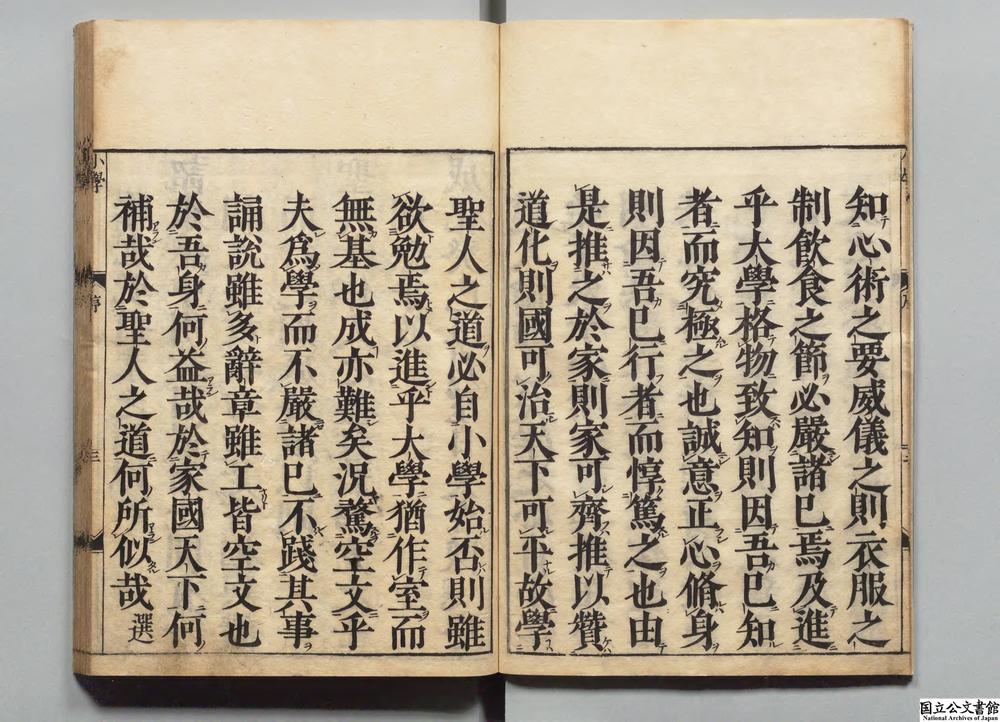 知心術之要威儀之則衣服之
制飲食之節必嚴諸已焉及進
乎大學格物致知則因吾已知
者而究極之也誠意正心脩身
則因吾已行者而惇篤之也由
是推之於家則家可齊推以贊
道化則國可治天下可平故學
聖人之道必自小學始否則雖
欲勉焉以進乎大學猶作室而
無基也成亦難矣況騖空文乎
夫爲學而不嚴諸已不踐其事
誦說雖多辭章雖工皆空文也
於吾身何益哉於家國天下何
補哉於聖人之道何所似哉 選
小學
序
三
国立公文書館
National Archives of Japan